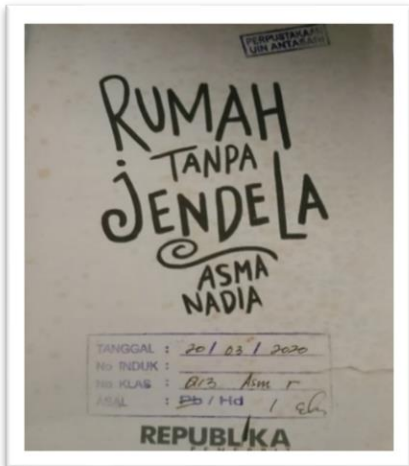 PERPUSTAKAAN
UIN ANTASARI
RUMAH
TANPA
JENDELA
ASMA
NADIA
TANGGAL : 20 / 03 / 2020
No INDUK :
No KLAS : Asm r
ASAL : Pb / Hd /
REPUBLIKA